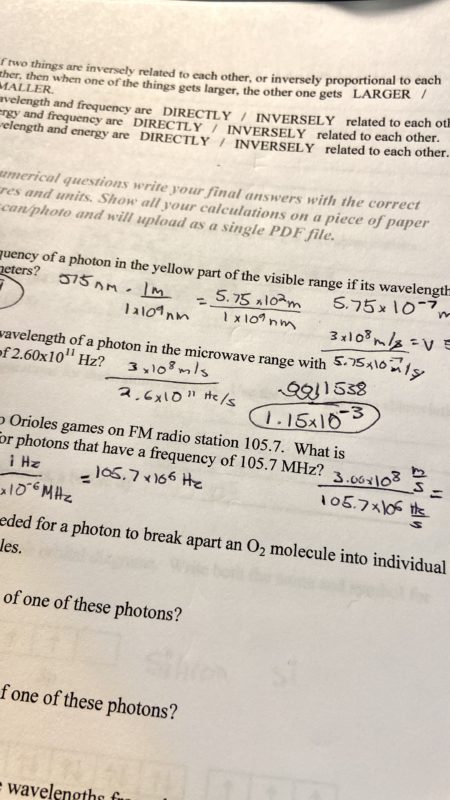 f two things are inversely related to each other, or inversely proportional to each
ther, then when one of the things gets larger, the other one gets LARGER /
MALLER.
avelength and frequency are DIRECTLY / INVERSELY related to each oth
ergy and frequency are DIRECTLY / INVERSELY related to each other.
velength and energy are DIRECTLY / INVERSELY related to each other.
umerical questions write your final answers with the correct
res and units. Show all your calculations on a piece of paper
scan/photo and will upload as a single PDF file.
quency of a photon in the yellow part of the visible range if its wavelength
neters? 575 nm · 1m = 5.75 x10²m 5.75 x 10⁻⁷ m
1x10⁹ nm 1 x10⁹ nm
3x10⁸ m/s = ν =
wavelength of a photon in the microwave range with 5.75x10⁻⁷
of 2.60x10¹¹ Hz? 3 x10⁸ m/s .0011538
2.6x10¹¹ Hz/s 1.15x10⁻³
o Orioles games on FM radio station 105.7. What is
or photons that have a frequency of 105.7 MHz? 3.00x10⁸ m/s =
1 Hz = 105.7 x10⁶ Hz 105.7x10⁶ Hz/s
x10⁻⁶ MHz
eded for a photon to break apart an O₂ molecule into individual
les.
of one of these photons?
f one of these photons?
wavelengths